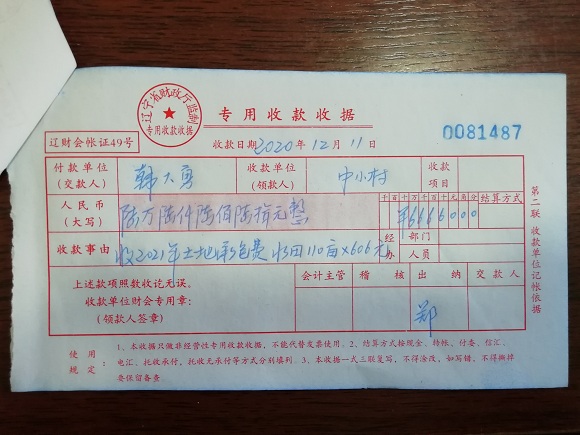 辽宁省财政厅监制
专用收款收据
专用收款收据
辽财会帐证49号
收款日期2020年12月11日
0081487
付款单位
(交款人)
韩大勇
收款单位
(领款人)
中小村
收款
项目
人民币
(大写)
陆万陆仟陆佰陆拾元整
千百十万千百十元角分
¥6666000
结算方式
收款事由
收2021年土地承包费 水田110亩×606元
经
办
部门
人员
上述款项照数收讫无误。
收款单位财会专用章:
(领款人签章)
会计主管
稽核
出纳
交款人
郑
第二联 收款单位记帐依据
使用
规定:
1、本收据只做非经营性专用收款收据,不能代替发票使用。2、结算方式按现金、转帐、付委、信汇、
电汇、托收承付,托收无承付等方式分别填列。3、本收据一式三联复写,不得涂改,如写错,不得撕掉
要保留备查。